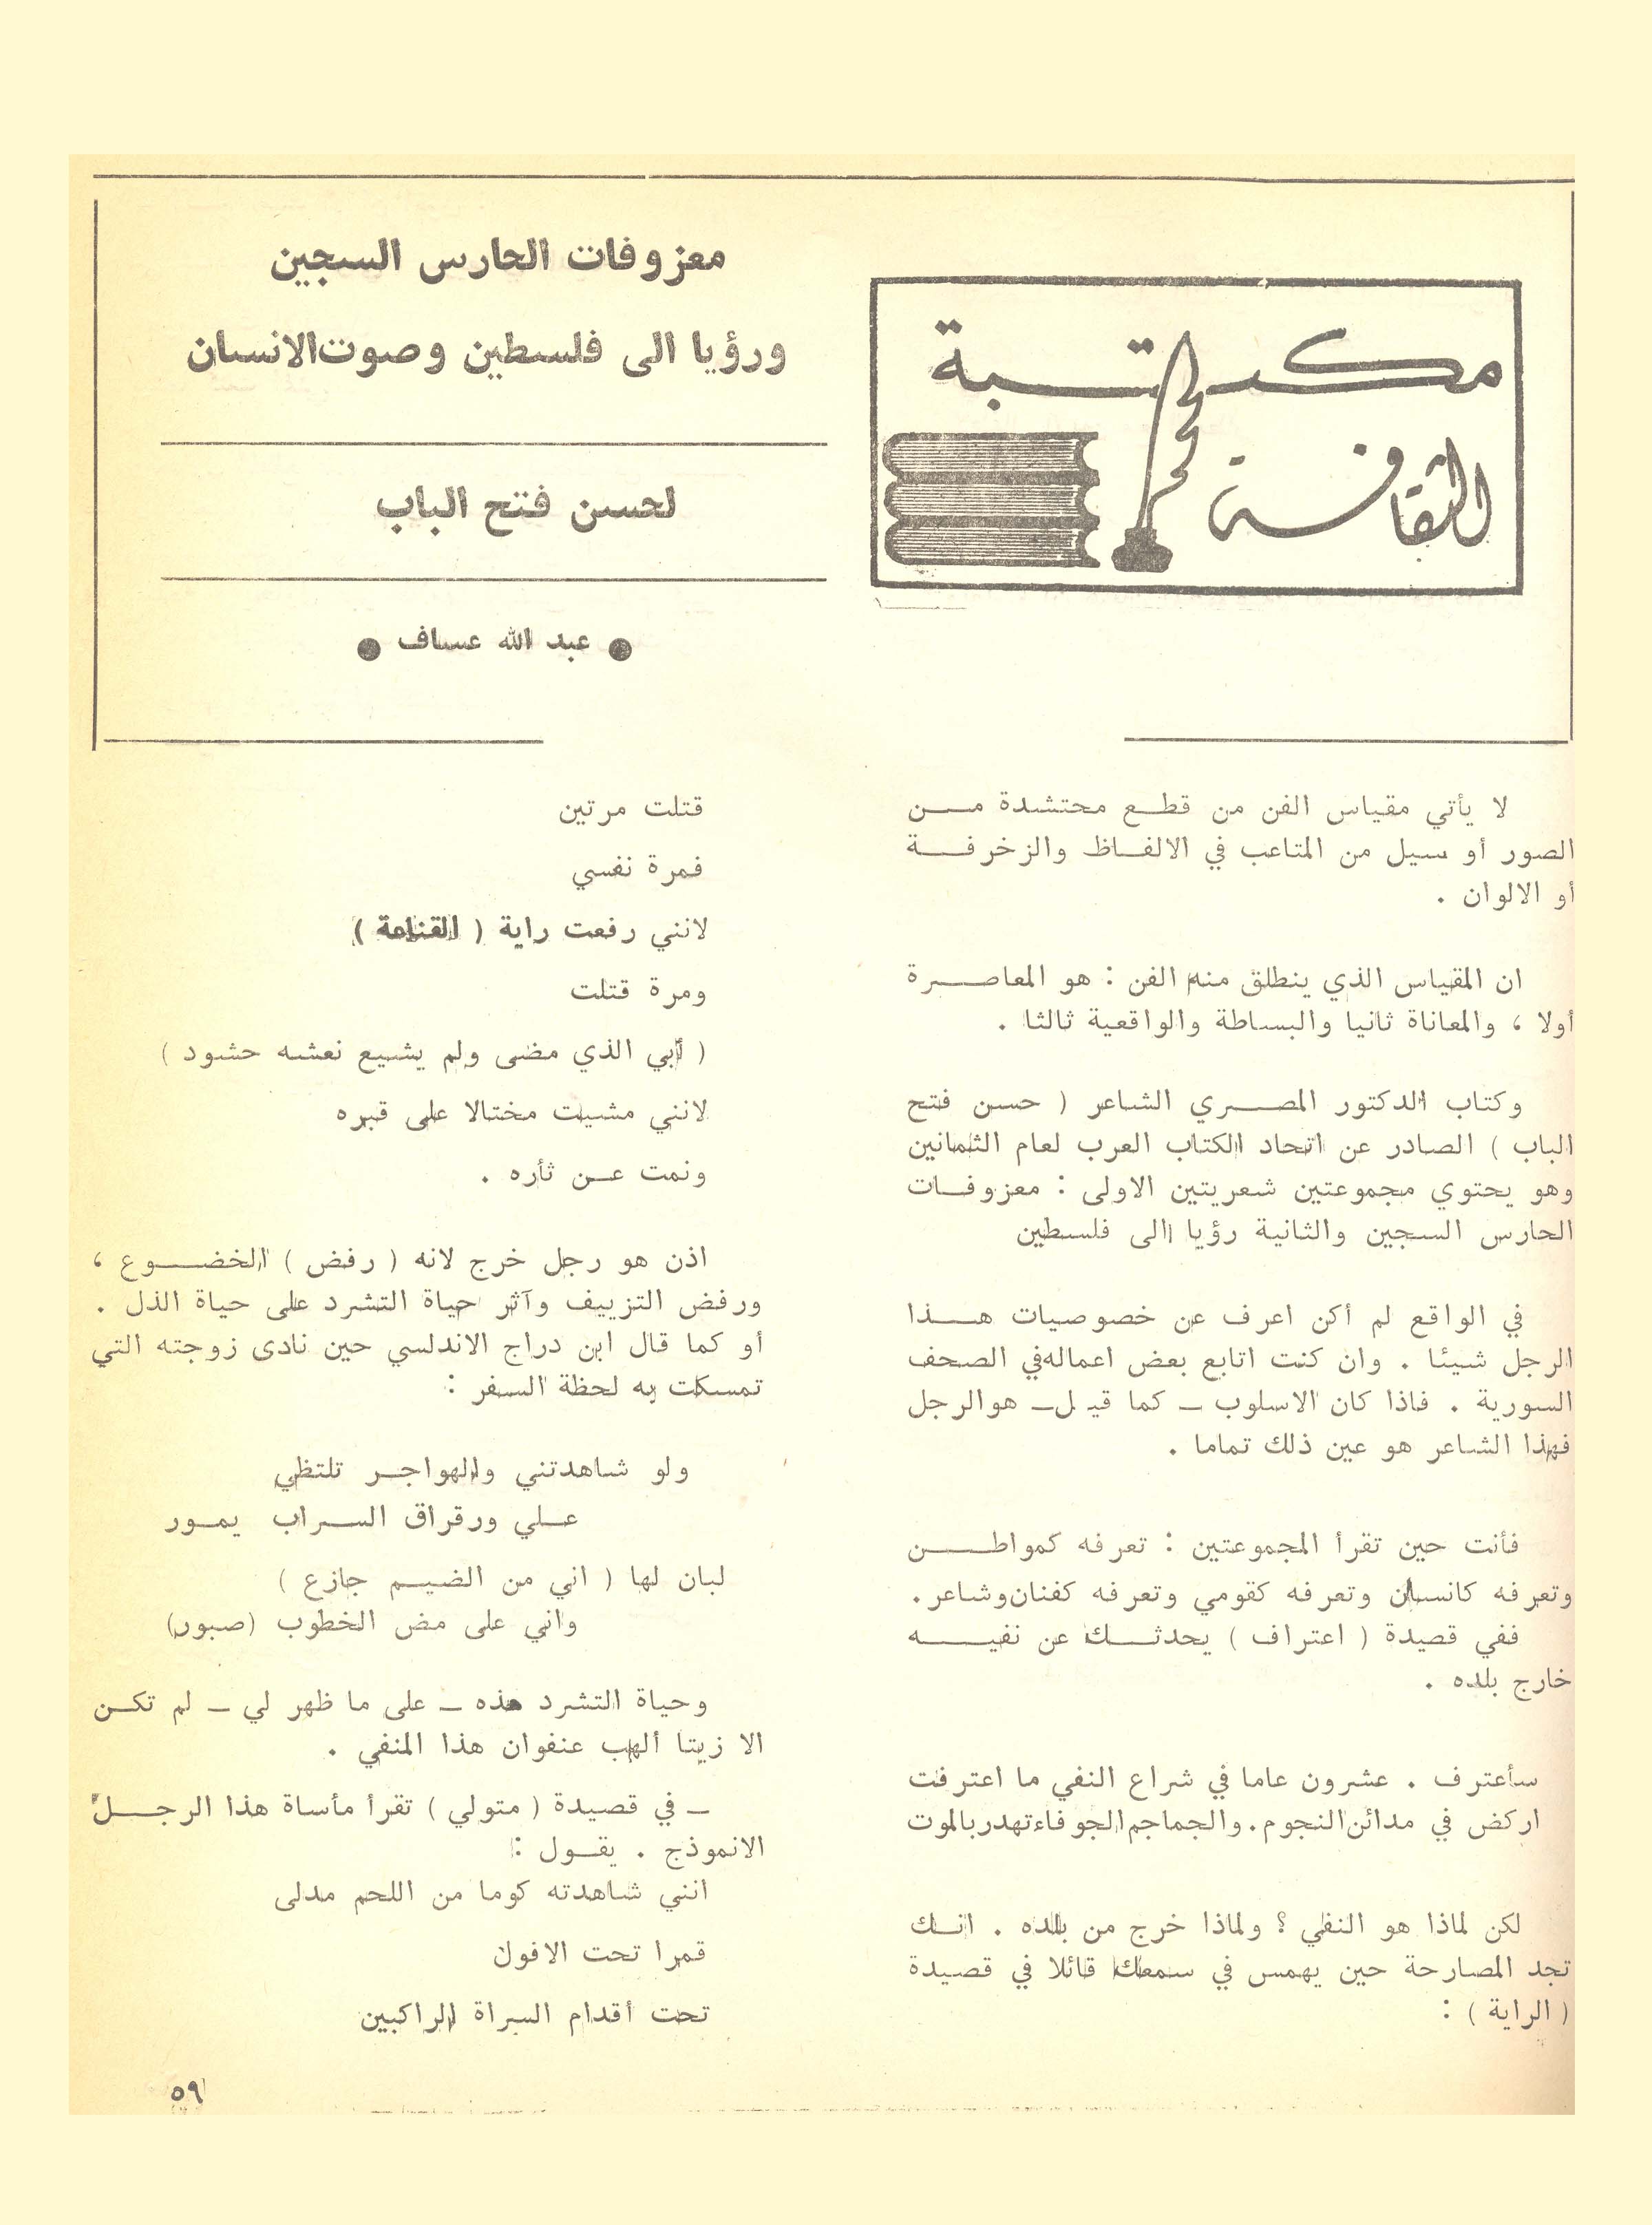 مكتبة
الثقافة
معزوفات الحارس السجين
ورؤيا الى فلسطين وصوت الانسان
لحسن فتح الباب
● عبد الله عساف ●
لا يأتي مقياس الفن من قطع محتشدة من
الصور أو سيل من المتاعب في الالفاظ والزخرفة
أو الالوان .
ان المقياس الذي ينطلق منه الفن : هو المعاصرة
أولا ، والمعاناة ثانيا والبساطة والواقعية ثالثا .
وكتاب الدكتور المصري الشاعر ( حسن فتح
الباب ) الصادر عن اتحاد الكتاب العرب لعام الثمانين
وهو يحتوي مجموعتين شعريتين الاولى : معزوفات
الحارس السجين والثانية رؤيا الى فلسطين
في الواقع لم أكن اعرف عن خصوصيات هذا
الرجل شيئا . وان كنت اتابع بعض اعماله في الصحف
السورية . فاذا كان الاسلوب – كما قيل – هو الرجل
فهذا الشاعر هو عين ذلك تماما .
فأنت حين تقرأ المجموعتين : تعرفه كمواطن
وتعرفه كانسان وتعرفه كقومي وتعرفه كفنان وشاعر .
ففي قصيدة ( اعتراف ) يحدثك عن نفيه
خارج بلده .
سأعترف . عشرون عاما في شراع النفي ما اعترفت
اركض في مدائن النجوم . والجماجم الجوفاء تهدر بالموت
لكن لماذا هو النفي ؟ ولماذا خرج من بلده . انك
تجد المصارحة حين يهمس في سمعك قائلا في قصيدة
( الراية ) :
قتلت مرتين
فمرة نفسي
لانني رفعت راية ( القناعة )
ومرة قتلت
( أبي الذي مضى ولم يشيع نعشه حشود )
لانني مشيت مختالا على قبره
ونمت عن ثأره .
اذن هو رجل خرج لانه ( رفض ) الخضوع ،
ورفض التزييف وآثر حياة التشرد على حياة الذل .
أو كما قال ابن دراج الاندلسي حين نادى زوجته التي
تمسكت به لحظة السفر :
ولو شاهدتني والهواجر تلتظي
علي ورقراق السراب يمور
لبان لها ( اني من الضيم جازع )
واني على مض الخطوب (صبور)
وحياة التشرد هذه – على ما ظهر لي – لم تكن
الا زيتا ألهب عنفوان هذا المنفي .
– في قصيدة ( متولي ) تقرأ مأساة هذا الرجل
الانموذج . يقول :
انني شاهدته كوما من اللحم مدلى
قمرا تحت الافول
تحت أقدام السراة الراكبين
٥٩